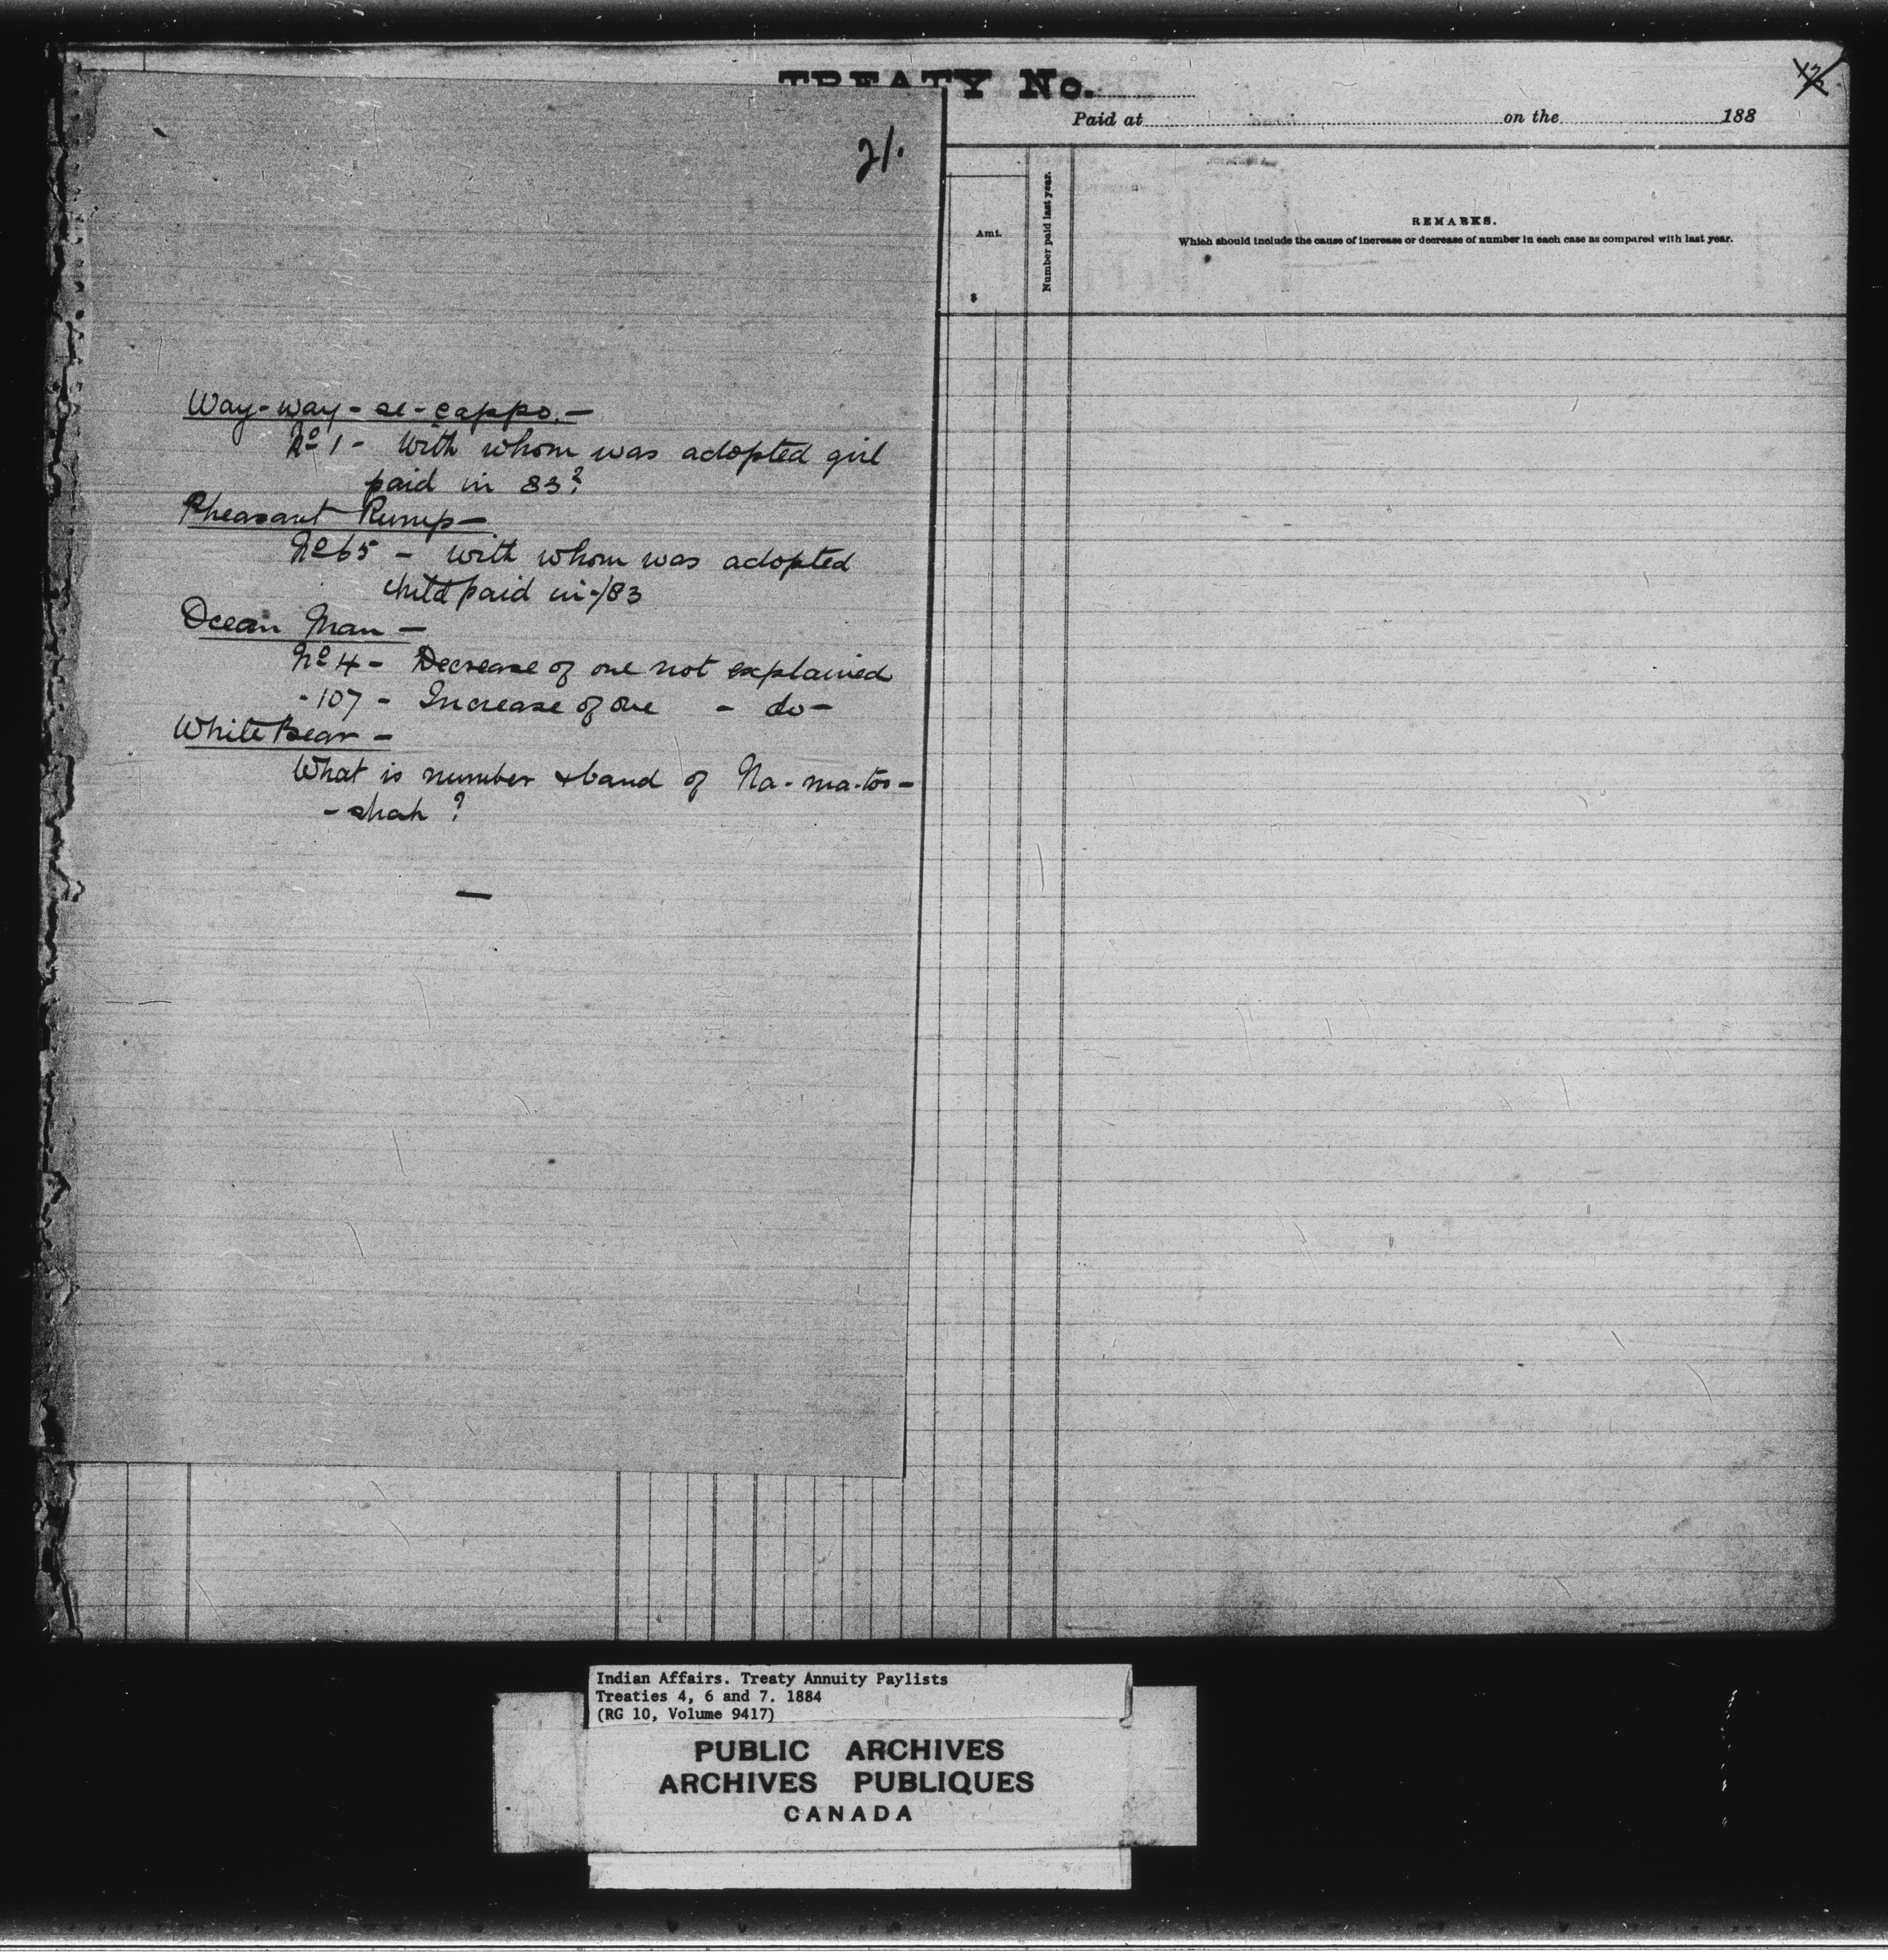 TREATY No.
Paid at on the 188
21.
Amt.
$
Number paid last year.
REMARKS.
Which should include the cause of increase or decrease of number in each case as compared with last year.
Way-way-se-cappo.-
No 1 - With whom was adopted girl
paid in 83?
Pheasant Rump -
No 65 - with whom was adopted
child paid in /83
Ocean Man -
No 4 - Decrease of one not explained
- 107 - Increase of one - do -
White Bear -
What is number & band of Na-ma-too-
-shah ?
Indian Affairs. Treaty Annuity Paylists
Treaties 4, 6 and 7. 1884
(RG 10, Volume 9417)
PUBLIC ARCHIVES
ARCHIVES PUBLIQUES
CANADA